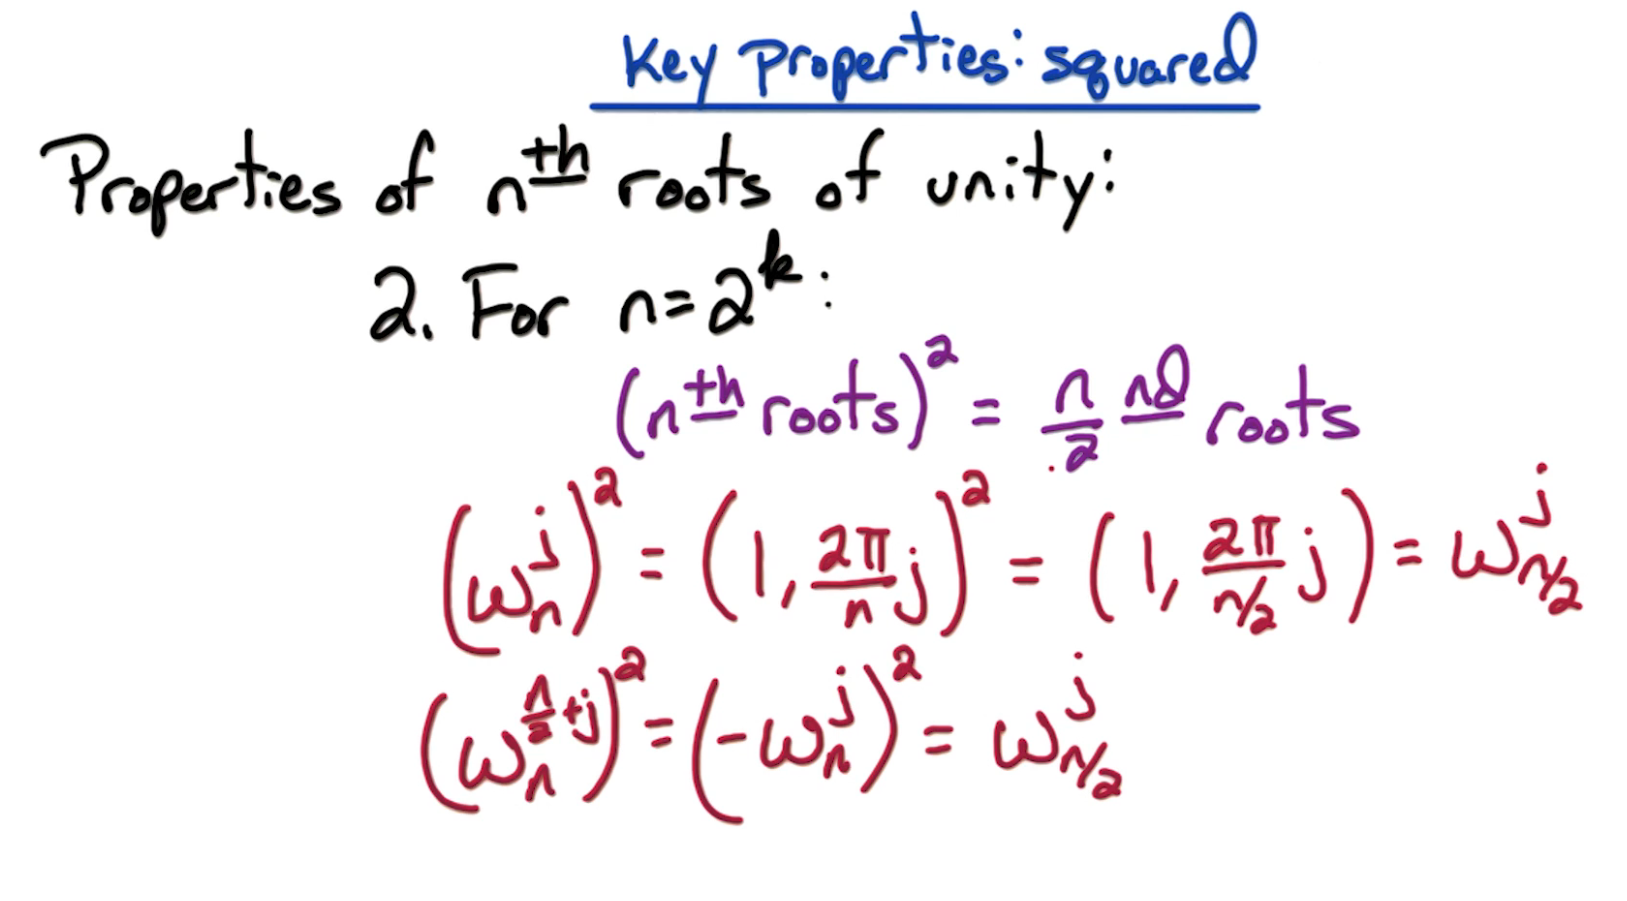 Key Properties: squared
Properties of nth roots of unity:
2. For n=2^k:
(nth roots)^2 = n/2 nd roots
(ω_n^j)^2 = (1, 2π/n j)^2 = (1, 2π/(n/2) j) = ω_{n/2}^j
(ω_n^{n/2+j})^2 = (-ω_n^j)^2 = ω_{n/2}^j